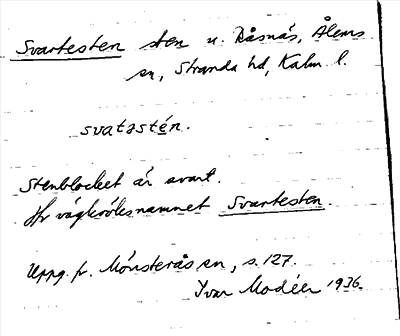 Svartesten sten u. Råsnäs, Ålems
sn, Stranda hd, Kalm. l.
svatastén.
Stenblocket är svart.
Jfr vägkröksnamnet Svartesten.
Uppg. fr. Mönsterås sn, s. 127.
Ivar Modéer 1936.